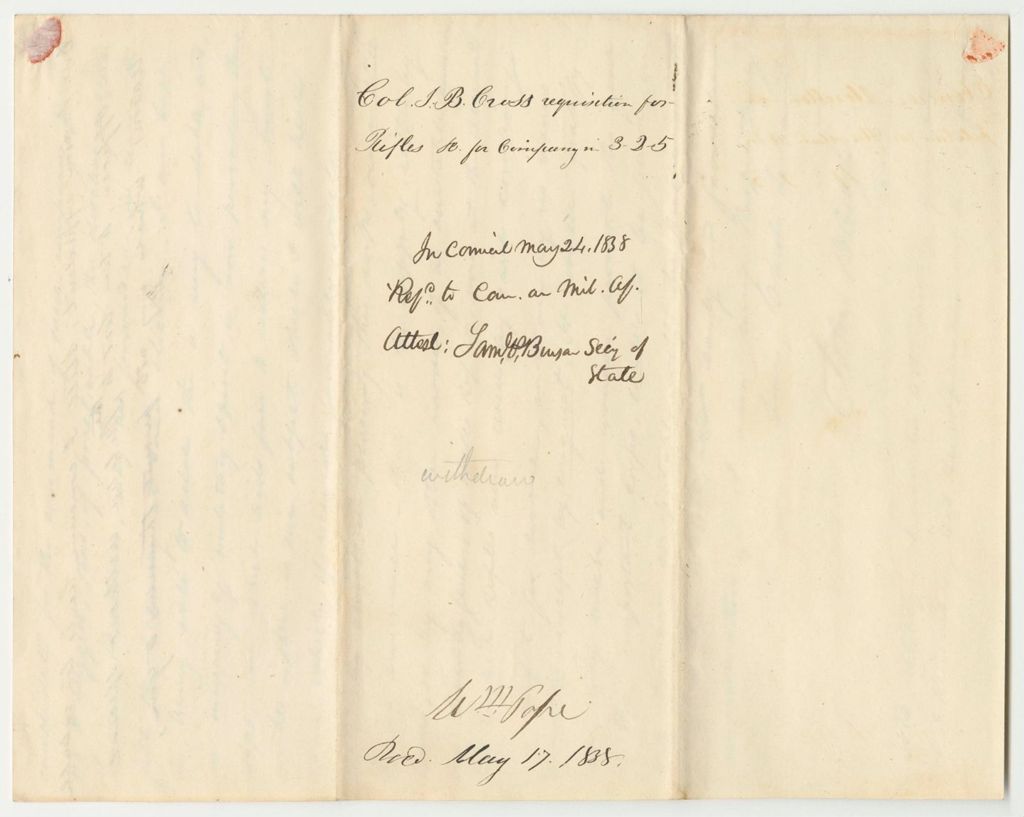 Col. J. B. Cross requisition for
Rifles &c. for Company in 3-2-5
In Council May 24. 1838
Refd. to Com. on Mil. Af.
Attest: Saml. P. Benson Secy of
State
withdraw
Wm Pope
Recd. May 17. 1838.